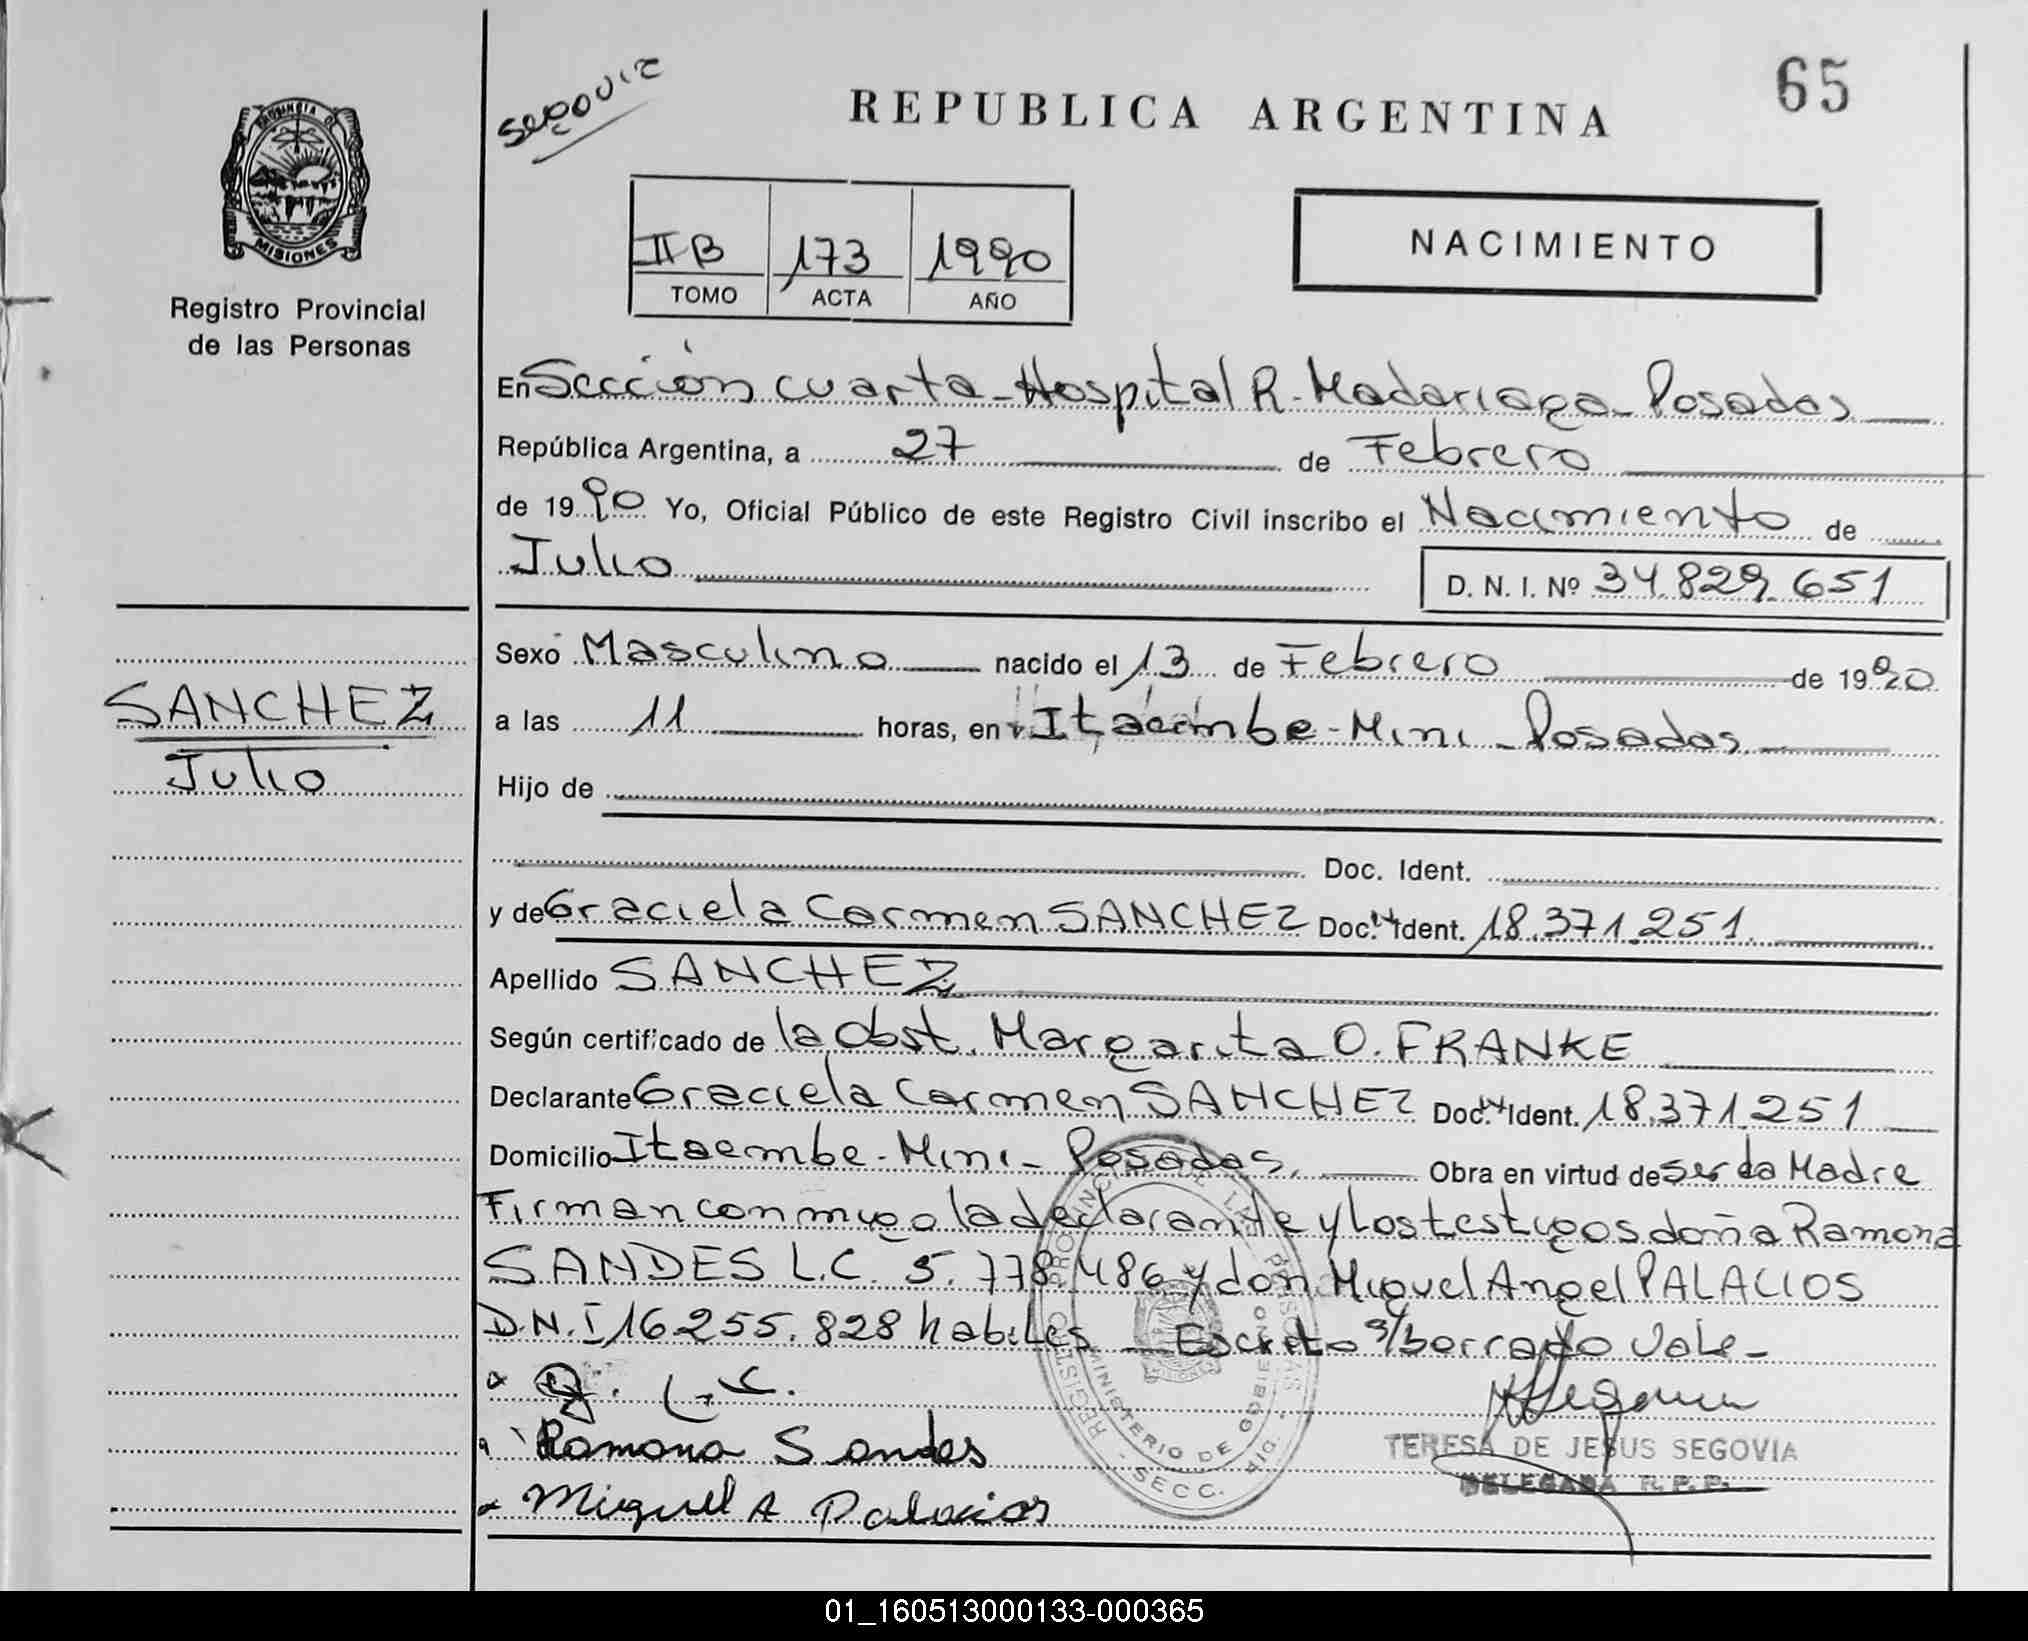 segovia
REPUBLICA ARGENTINA
65
PROVINCIA DE
MISIONES
Registro Provincial
de las Personas
II B 173 1990
TOMO ACTA AÑO
NACIMIENTO
En Sección cuarta - Hospital R. Madariaga - Posadas
República Argentina, a 27 de Febrero
de 1990 Yo, Oficial Público de este Registro Civil inscribo el Nacimiento de
Julio D. N. I. Nº 34.829.651
Sexo Masculino nacido el 13 de Febrero de 1990
SANCHEZ
Julio
a las 11 horas, en Itaembe - Mini - Posadas
Hijo de
Doc. Ident.
y de Graciela Carmen SANCHEZ Doc. Ident. 18.371.251
Apellido SANCHEZ
Según certificado de la Obst. Margarita O. FRANKE
Declarante Graciela Carmen SANCHEZ Doc. Ident. 18.371.251
Domicilio Itaembe - Mini - Posadas. Obra en virtud de ser la Madre
Firman conmigo la declarante y los testigos doña Ramona
SANDES L.C. 5.778.486 y don Miguel Angel PALACIOS
D.N.I 16.255.828 habiles Escrito s/borrado Vale -
Ramona Sandes
Miguel A Palacios
REGISTRO PROVINCIAL DE LAS PERSONAS
MINISTERIO DE GOBIERNO
- SECC. 4ta. -
TERESA DE JESUS SEGOVIA
DELEGADA R. P. P.
01_160513000133-000365